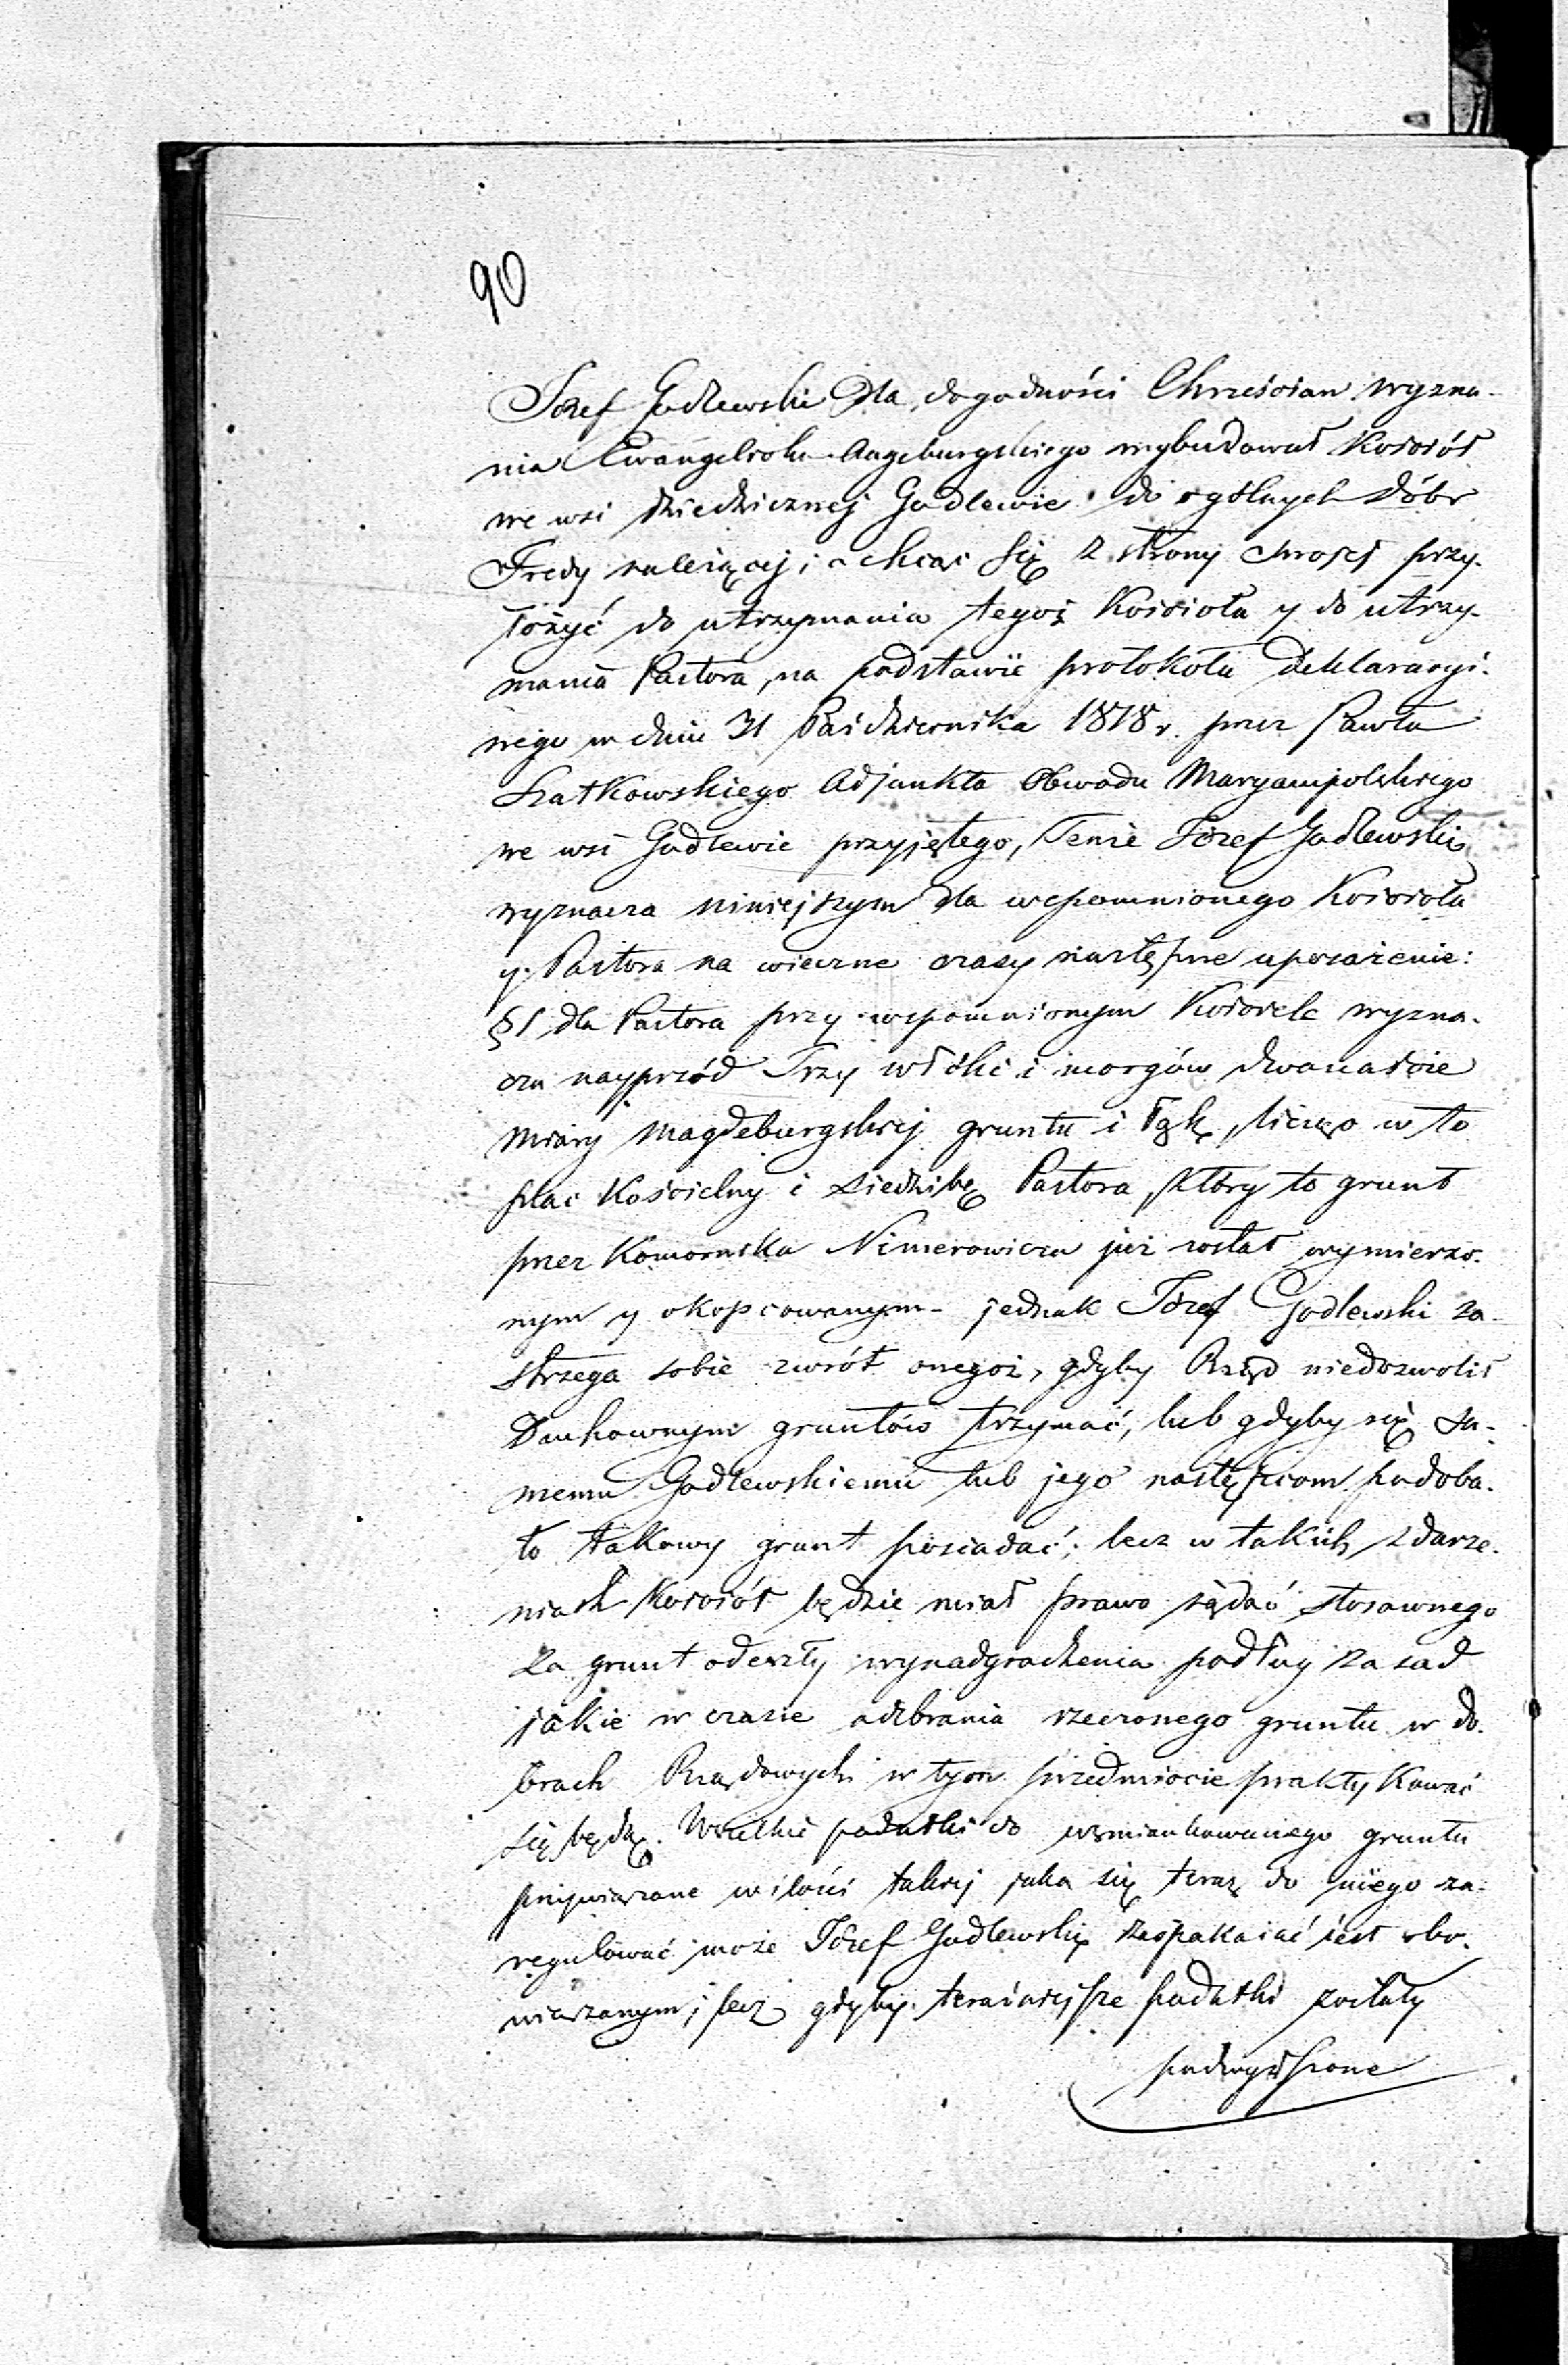 90
Józef Godlewski dla dogodności Chrześcian wyzna-
nia Ewangelicko-Augsburgskiego wybudował Kościół
we wsi dziedzicznej Godlewie do ogólnych dóbr
Fredy należącej; a chcąc się z strony swojej przy-
łożyć do utrzymania tegoż Kościoła y do utrzy-
mania Pastora, na podstawie protokołu deklaracyi-
nego w dniu 31 Października 1818 r. przez Pawła
Szatkowskiego Adjunkta Obwodu Maryampolskiego
we wsi Godlewie przyjętego, Tenże Józef Godlewski
wyznacza niniejszym dla wspomnionego Kościoła
y Pastora na wieczne czasy następne uposażenie:
§1 dla Pastora przy wspomnionym Kościele wyzna-
cza nayprzód Trzy włóki i morgów dwanaście
miary magdeburgskiej gruntu i łąk, licząc w to
plac Kościelny i siedzibę Pastora, który to grunt
przez Komornika Nimerowicza już został wymierzo-
nym y okopcowanym - jednak Józef Godlewski za-
strzega sobie zwrót onegoż, gdyby Rząd niedozwolił
Duchownym gruntów trzymać, lub gdyby się sa-
memu Godlewskiemu lub jego następcom podoba-
ło takowy grunt posiadać; lecz w takich zdarze-
niach Kościół będzie miał prawo żądać stosownego
za grunt odeszły wynadgrodzenia podług zasad
jakie w czasie odebrania rzeczonego gruntu w do-
brach Rządowych w tym przedmiocie praktykować
się będą. Wszelkie podatki do wzmiankowanego gruntu
przywiązane w ilości takiej jaka się teraz do niego za-
regulować może Józef Godlewski zaspakaiać jest obo-
wiązanym; lecz gdyby teraźniejsze podatki zostały
podwyższone